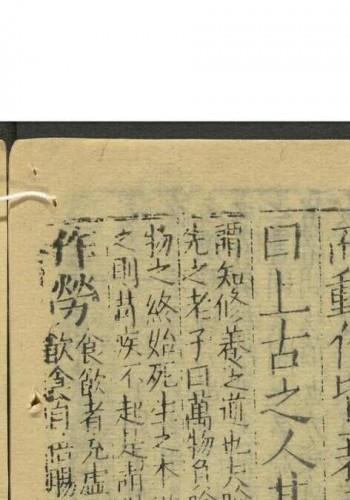 而動作皆衰
曰上古之人其
謂知修養之道也夫陰
先之老子曰萬物負陰
物之終始死生之本
之則苛疾不起是謂
作勞
食飲者充虛
飲食自倍腸